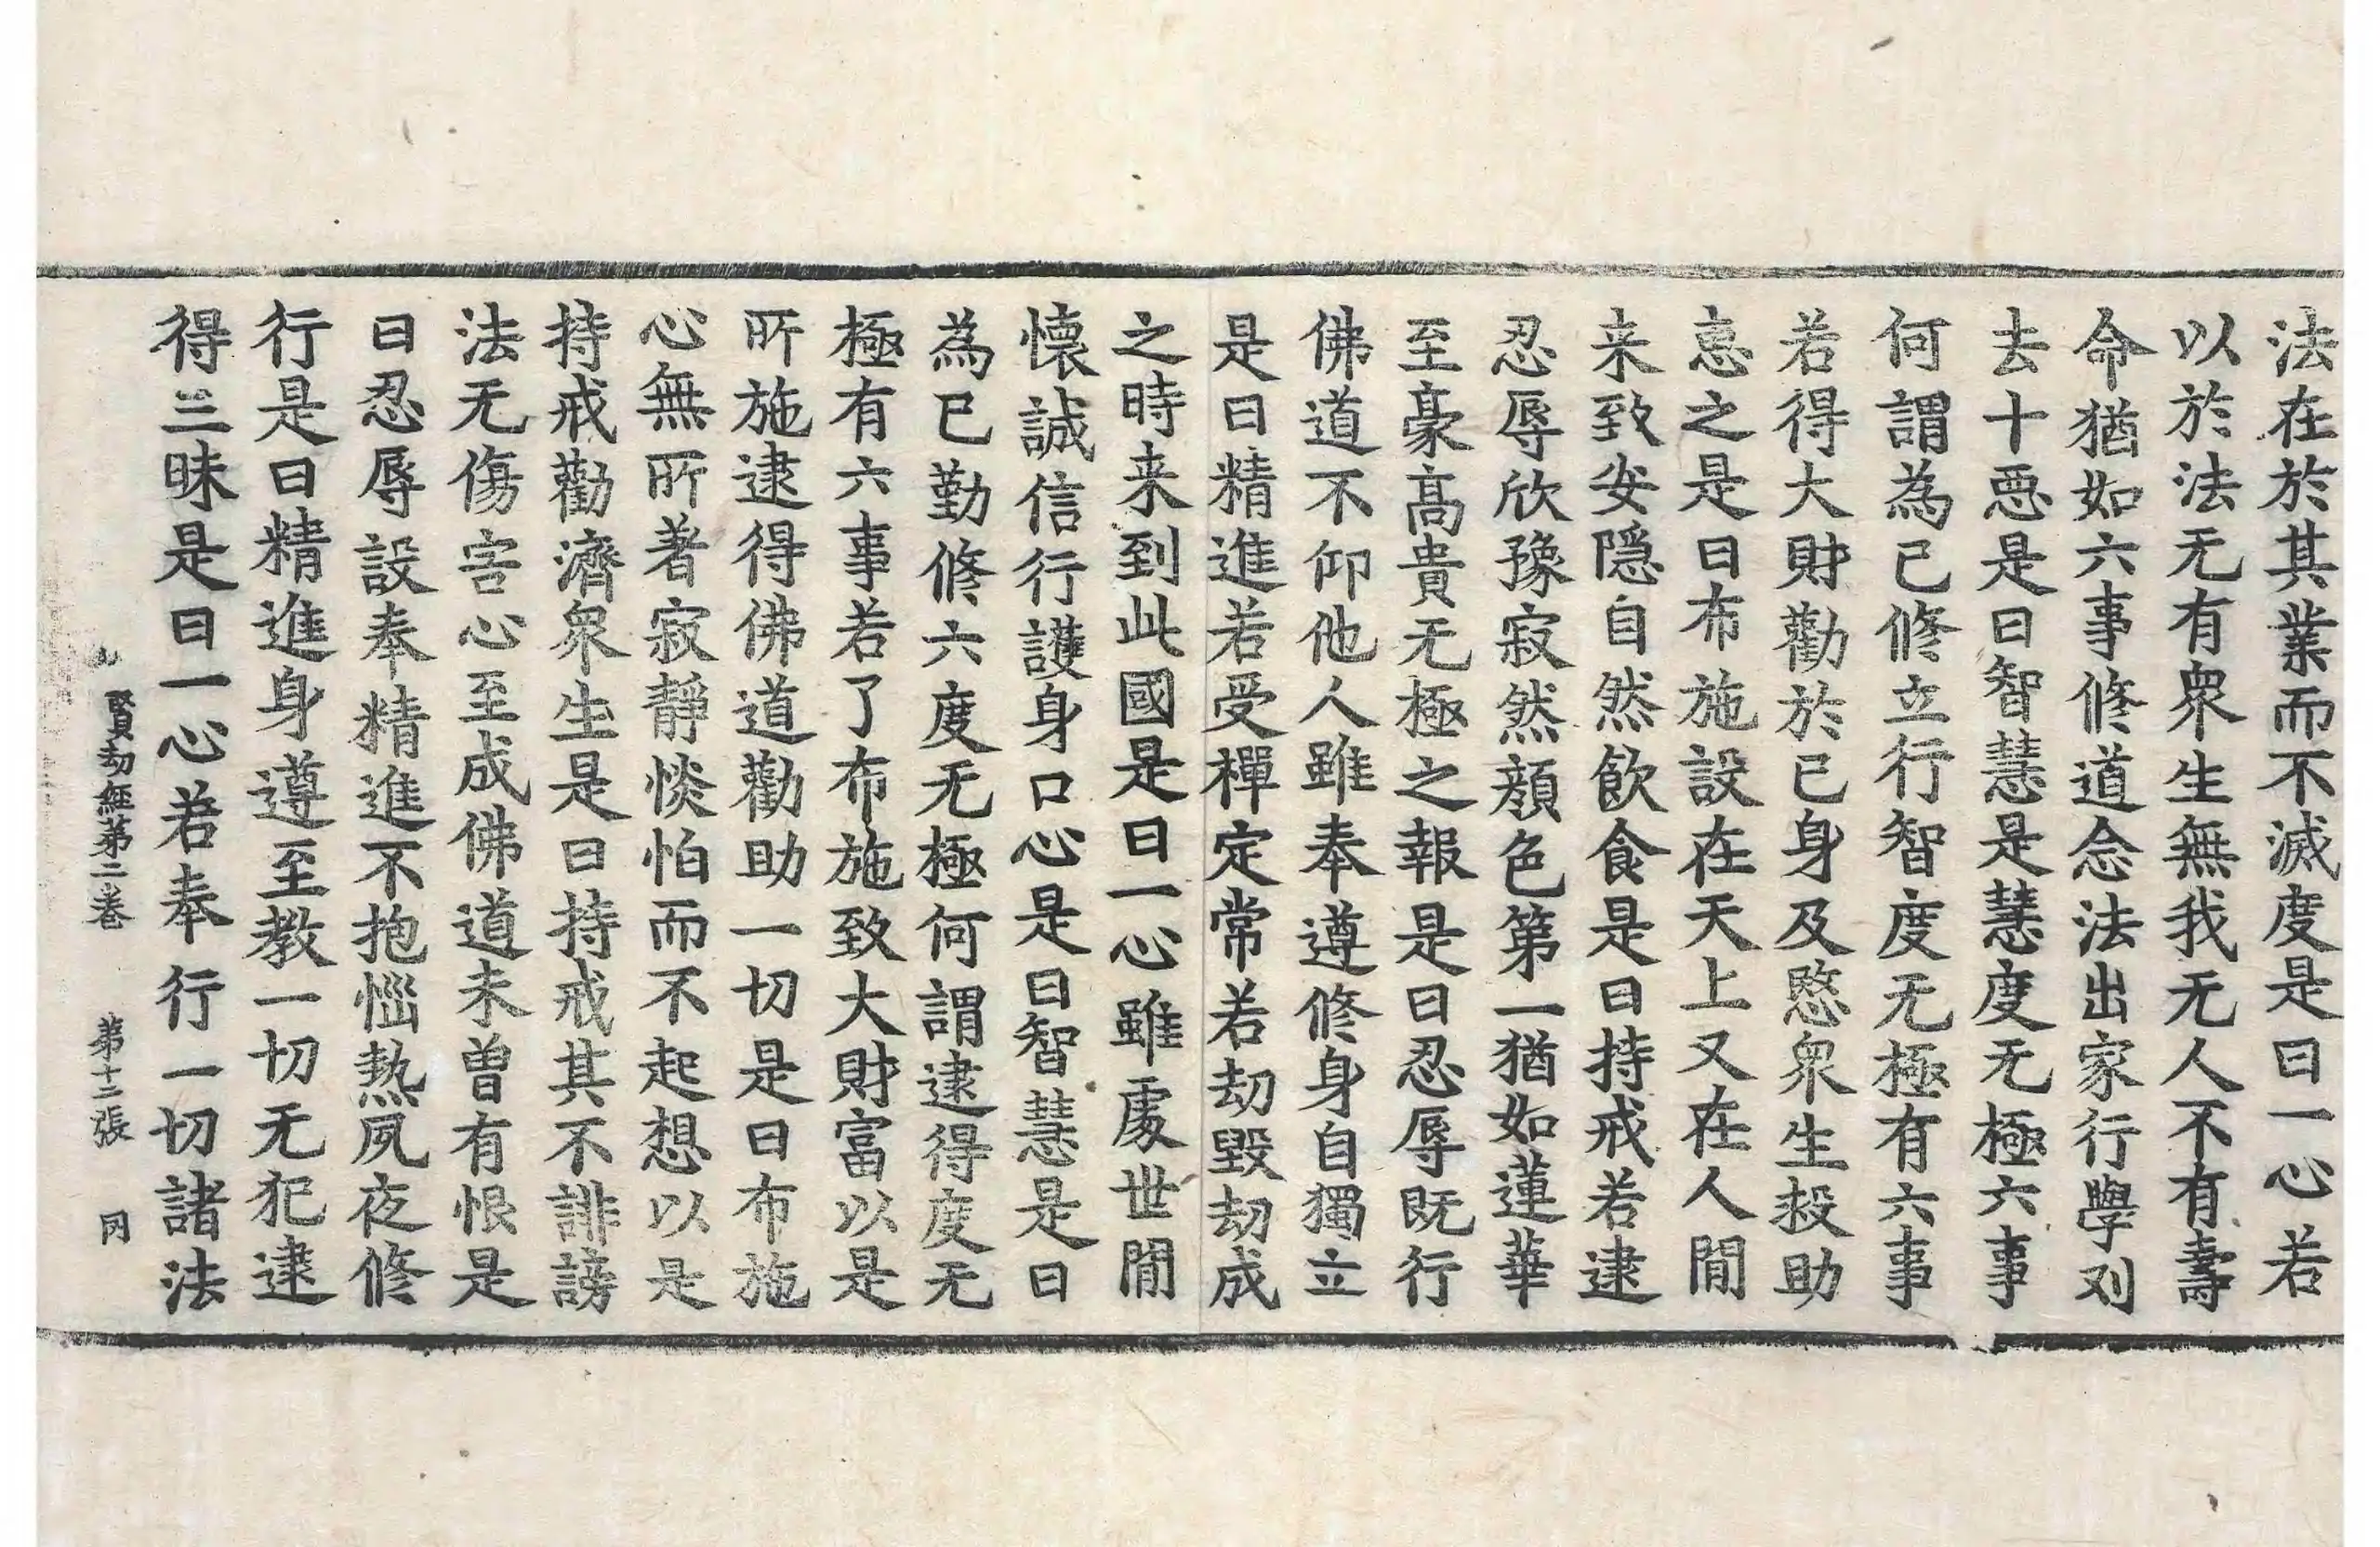 法在於其業而不滅度是曰一心若
以於法无有衆生無我无人不有壽
命猶如六事修道念法出家行學刈
去十惡是曰智慧是慧度无極六事
何謂為已修立行智度无極有六事
若得大財勸於已身及愍衆生投助
忘之是曰布施設在天上又在人閒
来致安隱自然飲食是曰持戒若逮
忍辱欣豫寂然顔色第一猶如蓮華
至豪髙貴无極之報是曰忍辱旣行
佛道不仰他人雖奉遵修身自獨立
是曰精進若受禪定常若劫毀劫成
之時来到此國是曰一心雖處世閒
懷誠信行護身口心是曰智慧是曰
為已勤修六度无極何謂逮得度无
極有六事若了布施致大財富以是
所施逮得佛道勸助一切是曰布施
心無所著寂靜惔怕而不起想以是
持戒勸濟衆生是曰持戒其不誹謗
法无傷害心至成佛道未曾有恨是
曰忍辱設奉精進不抱惱熱夙夜修
行是曰精進身遵至教一切无犯逮
得三昧是曰一心若奉行一切諸法
賢劫經第二卷 第十二張 罔